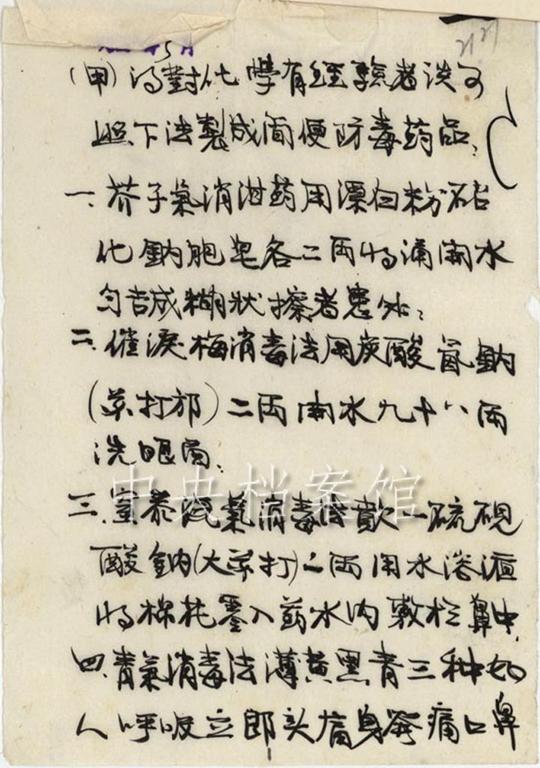 5月
(甲)的對化學有經驗者談可
照下法製成简便防毒药品:
一.芥子氣消泄药用漂白粉
化鈉肥皂各二両將滴開水
勻吉成糊狀擦者患处:
二.催淚 消毒法用炭酸 鈉
(苏打 )二両開水九十八両
洗眼 .
三.窒 氣消毒法 一硫
酸鈉(大苏打)二両用水溶
將棉花 入药水內敷 鼻中
四.青氣消毒法薄黄黑青三种如
人呼吸立即头 身 痛口鼻
中央档案馆